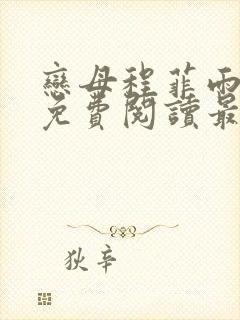 戀母程菲雨
免費閱讀最
狄辛